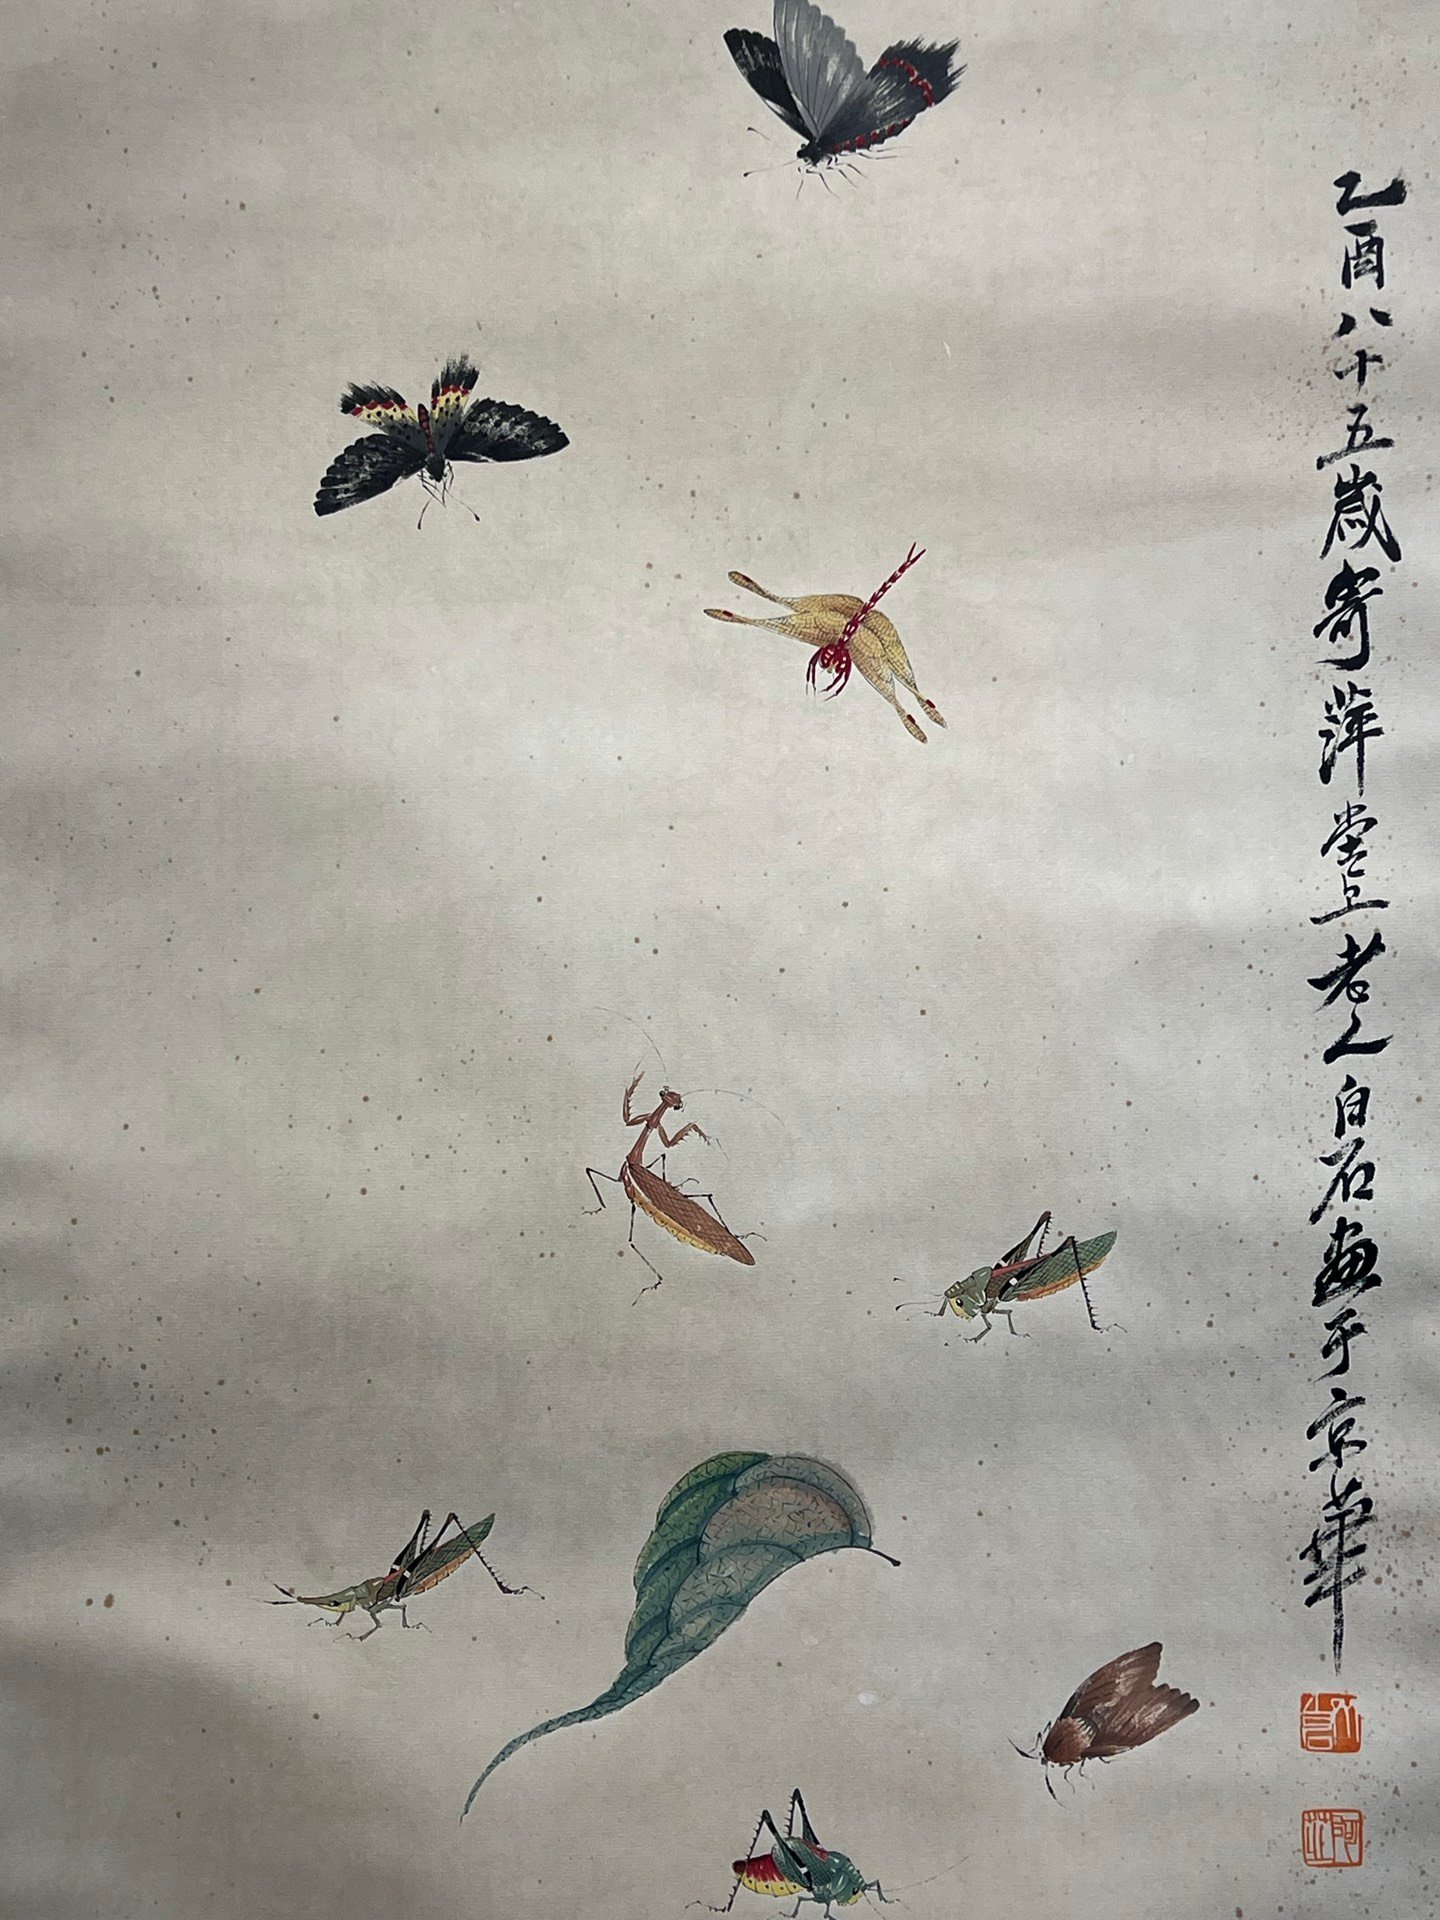 乙酉八十五歲寄萍堂上老人白石畫于京華